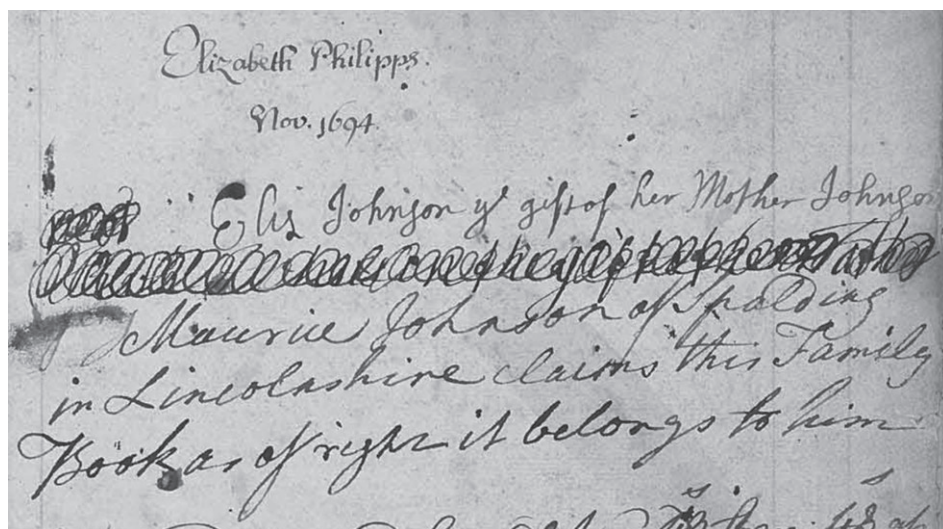 Elizabeth Philipps.
Nov. 1694.
Eliz Johnson yᵉ gift of her Mother Johnson
Maurice Johnson of Spalding
in Lincolnshire claims this Family
Book as of right it belongs to him